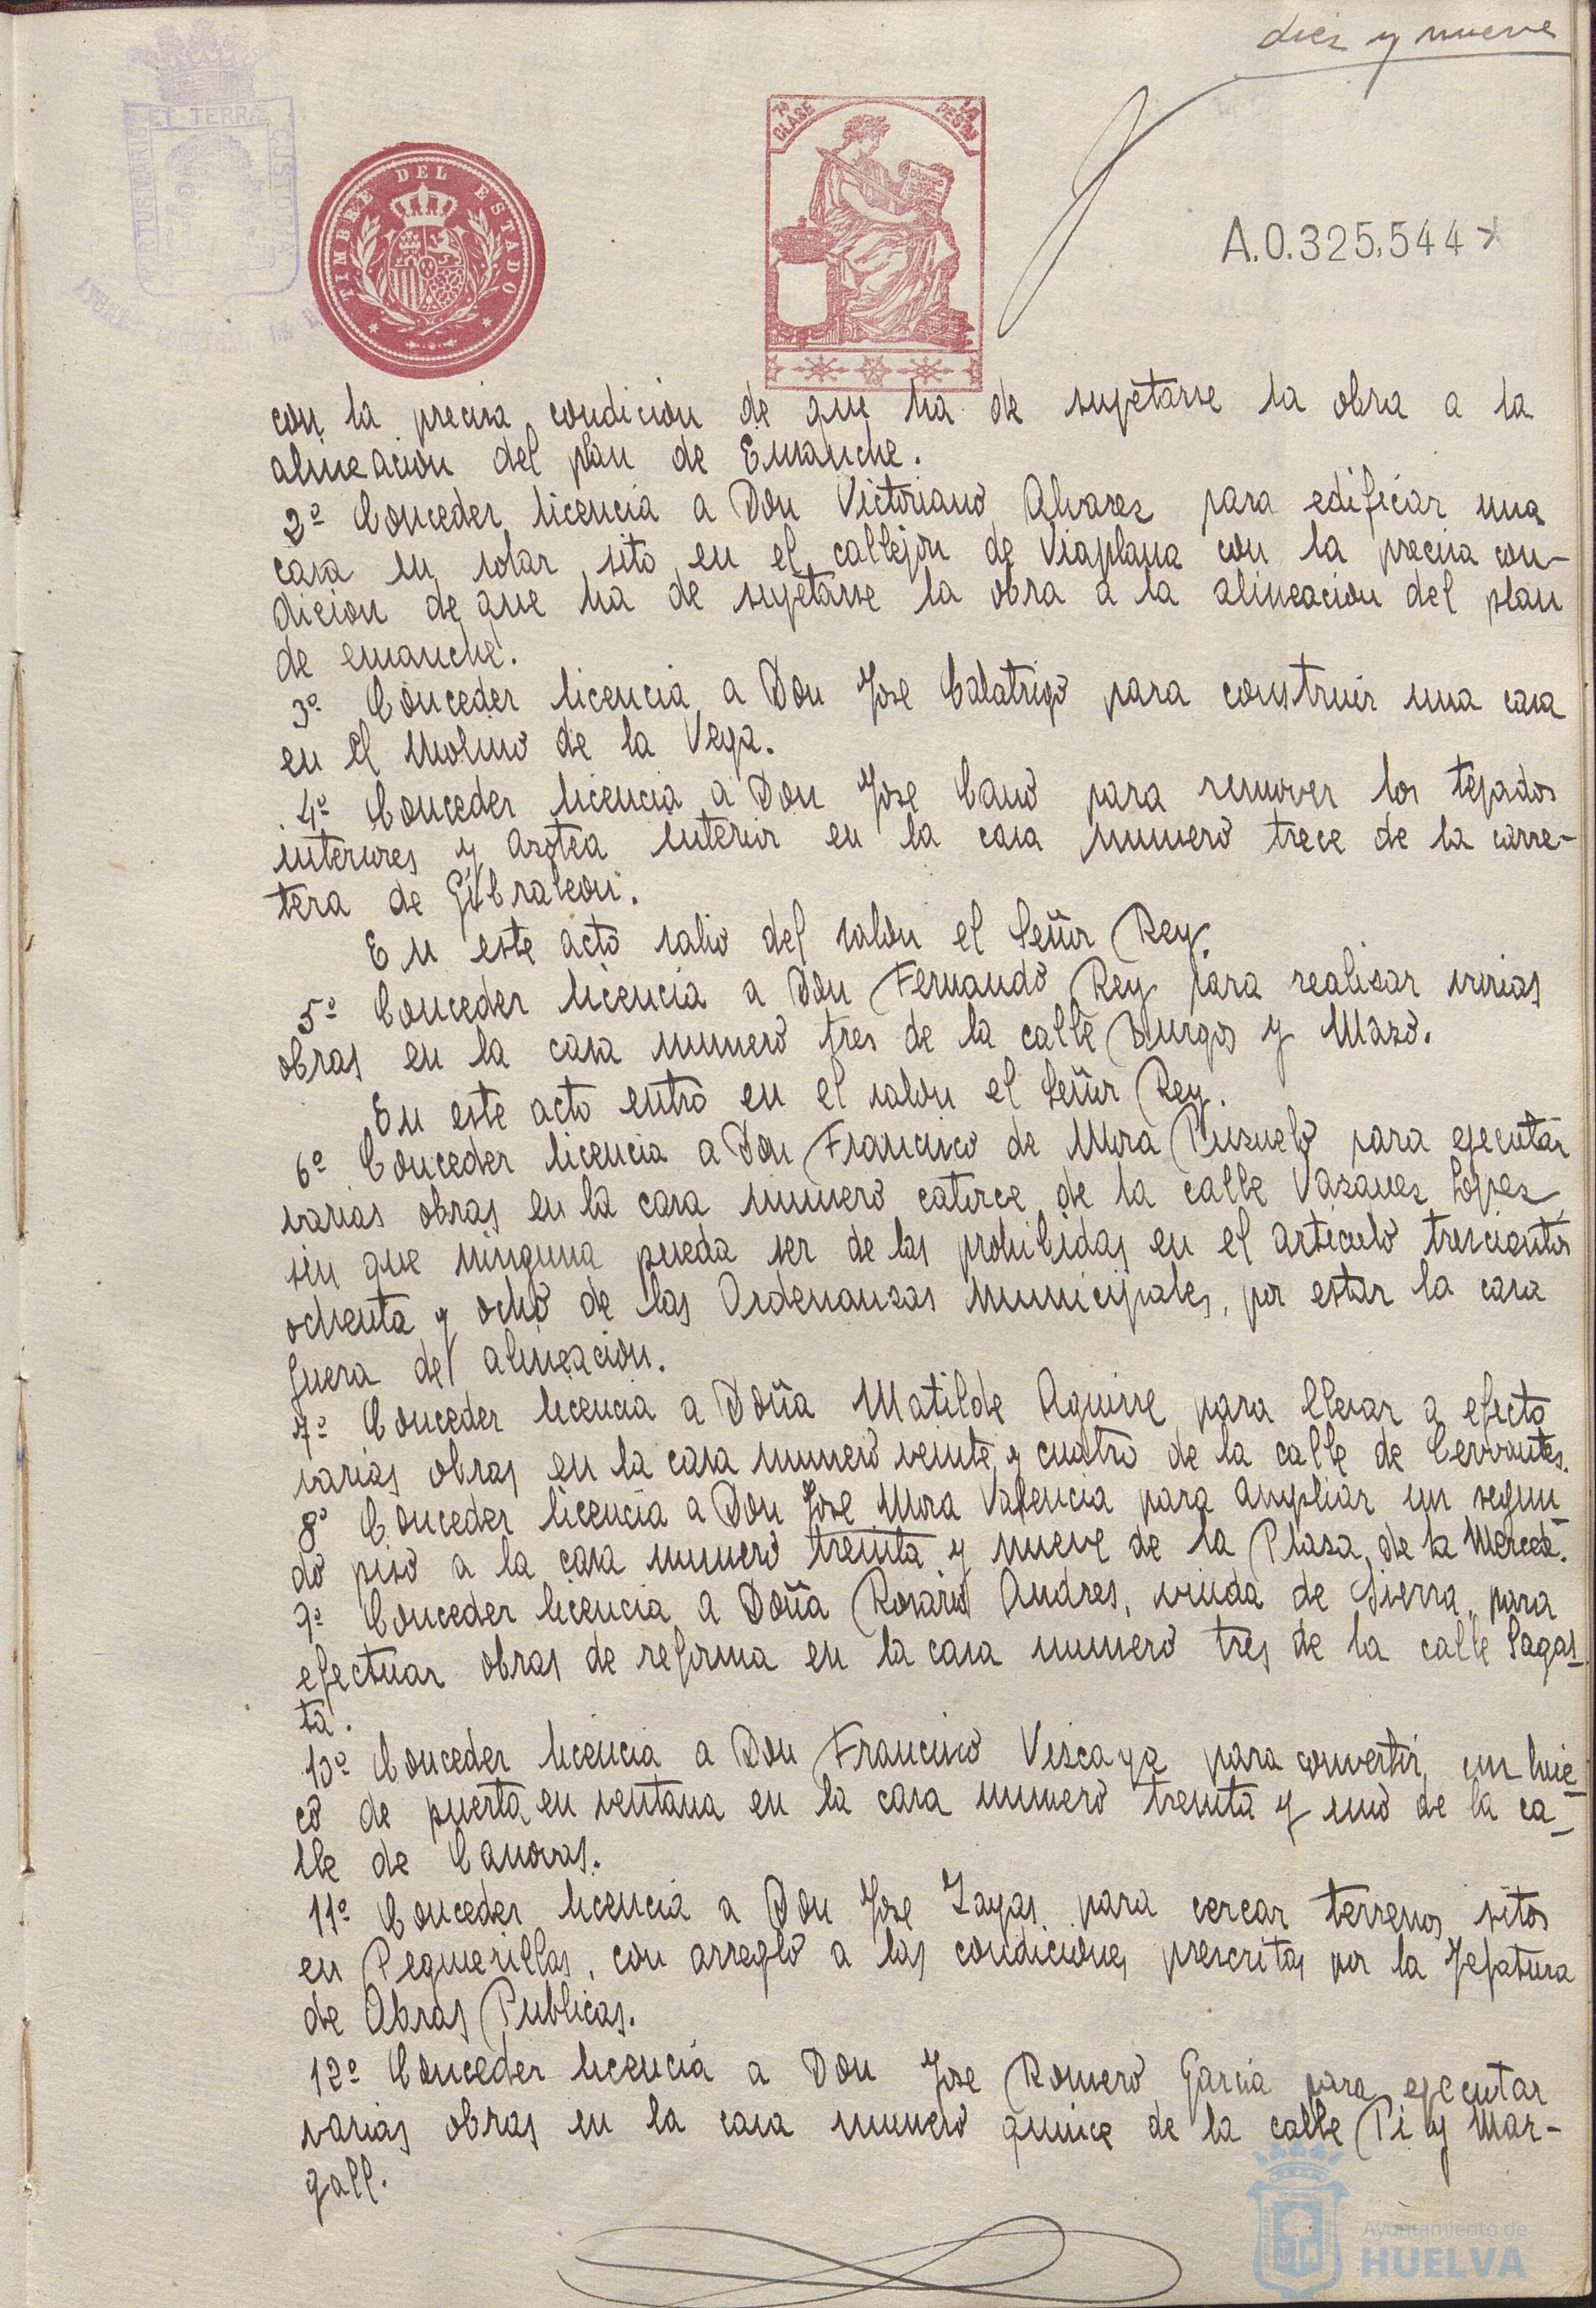 diez y nueve
ET TERRÆ CUSTODIA
TIMBRE DEL ESTADO
7ª CLASE
A.0.325,544
con la precisa condicion de que ha de sugetarse la obra a la
alineacion del plan de Ensanche.
2º Conceder licencia a Don Victoriano Alvarez para edificar una
casa en solar sito en el callejon de Viaplana con la precisa con-
dicion de que ha de sugetarse la obra a la alineacion del plan
de ensanche.
3º Conceder licencia a Don Jose Calatrigo para construir una casa
en el Molino de la Vega.
4º Conceder licencia a Don Jose Cano para remover los tejados
interiores y azotea interior en la casa numero trece de la carre-
tera de Gibraleon.
En este acto salio del salon el Señor Rey.
5º Conceder licencia a Don Fernando Rey para realizar varias
obras en la casa numero tres de la calle Burgos y Mazo.
En este acto entró en el salon el Señor Rey.
6º Conceder licencia a Don Francisco de Mora Puzuelo para ejecutar
varias obras en la casa numero catorce de la calle Vazquez Lopez
sin que ninguna pueda ser de las prohibidas en el articulo trescientos
ochenta y ocho de las Ordenanzas Municipales, por estar la casa
fuera de alineacion.
7º Conceder licencia a Doña Matilde Aguirre para llevar a efecto
varias obras en la casa numero veinte y cuatro de la calle de Cervantes.
8º Conceder licencia a Don Jose Mora Valencia para ampliar un segun
do piso a la casa numero treinta y nueve de la Plaza de la Merced.
9º Conceder licencia a Doña Rosario Andres, viuda de Sierra, para
efectuar obras de reforma en la casa numero tres de la calle Sagas-
ta.
10º Conceder licencia a Don Francisco Viscaya para convertir un hue-
co de puerta en ventana en la casa numero treinta y uno de la ca-
lle de Canovas.
11º Conceder licencia a Don Jose Zayas para cercar terrenos sitos
en Peguerillas, con arreglo a las condiciones prescritas por la Jefatura
de Obras Publicas.
12º Conceder licencia a Don Jose Romero Garcia para ejecutar
varias obras en la casa numero quince de la calle Pi y Mar-
gall.
Ayuntamiento de
HUELVA